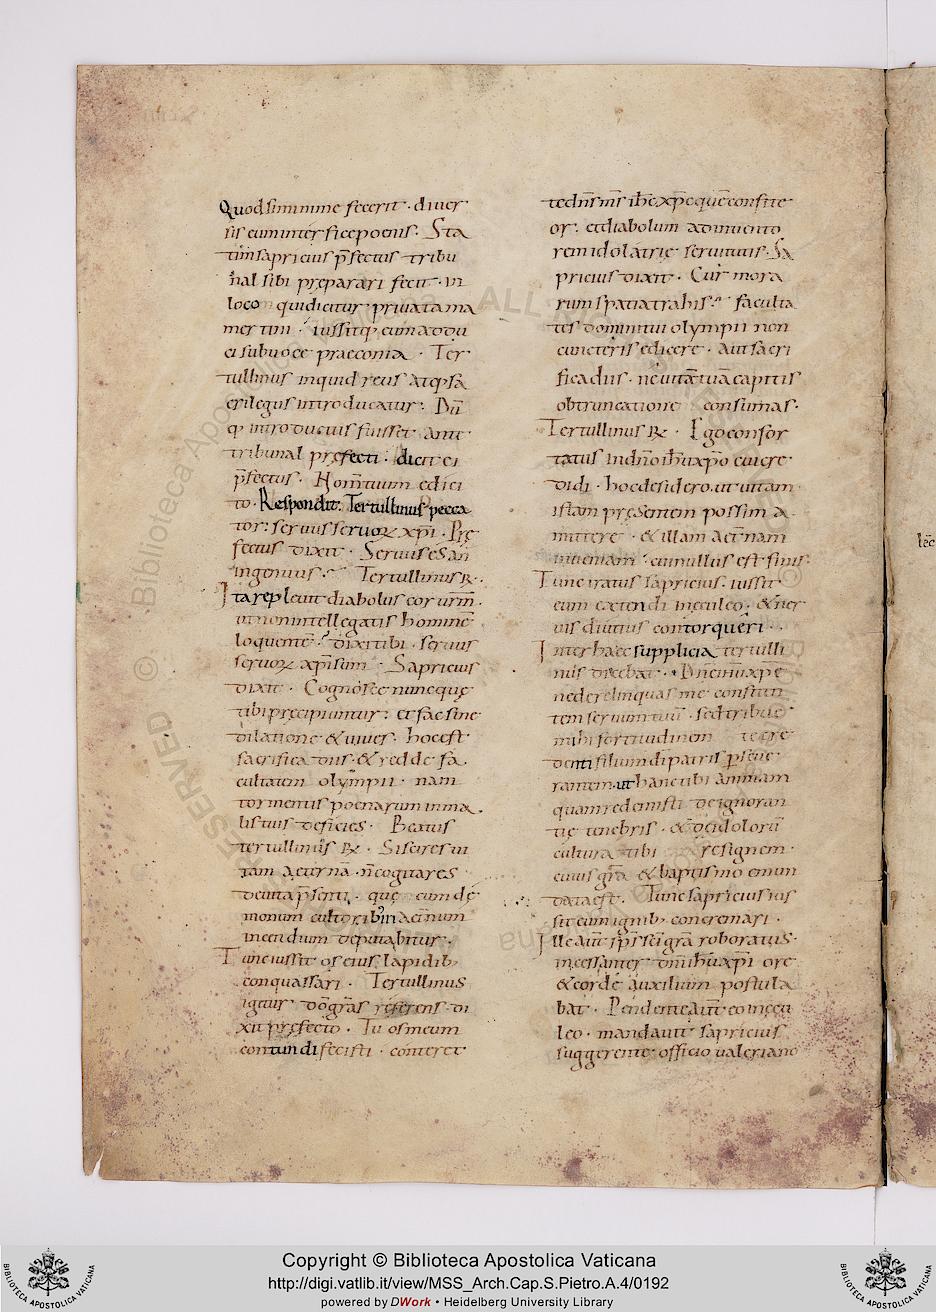 Quod si minime fecerit · diver
sis eum interficepoenis · Sta
tim sapricius p̄fectus tribu
nal sibi preparari fecit · in
loco qui dicitur privata ma
mertini · iussitq; eum addu
ci sub voce praeconia · Ter
tullinus inquid reus atq; sa
crilegus introducatur · Cū
q; introductus fuisset ante
tribunal prefecti · dicit ei
p̄fectus · Nom̄ tuum edici
to · Respondit Tertullinus pecca
tor: servus servoꝝ xp̄i · Pre
fectus dixit · Servus es an
ingenuus · Tertullinus ℞ ·
Ita replevit diabolus cor urm̄ ·
ut non intellegatis homine
loquente · dixi tibi · servus
servoꝝ xp̄i sum · Sapricius
dixit · Cognosce nunc que
tibi precipiuntur : et fac sine
dilatione & vives · hoc est
sacrifica diis · & redde fa
cultatem olympii · nam
tormentis poenarum in ma
listuis deficies · Beatus
tertullinus ℞ · Si scires vi
tam aeternā · n̄ cogitares
de vita p̄senti · que cum de
monum cultorib; in aet̄num
incendium deputabitur ·
Tunc iussit os eius lapidib;
conquassari · Tertullinus
igitur dō grās referens · di
xit prefecto · Tu os meum
contundi fecisti · conteret
te dn̄s m̄s ih̄c xp̄c quē confite
or · et diabolum adinvento
rem idolatrie servitutis · Sa
pricius dixit · Cur mora
rum spatia trahis · faculta
tes domini tui olympii non
cuncteris edicere · aut sacri
fica diis · ne vitā tuā capitis
obtruncatione consumas ·
Tertullinus ℞ · Ego confor
tatus in dn̄o ih̄u xp̄o cui cre
didi · hoc desidero · ut vitam
istam presentem possim a
mittere · & illam aet̄nam
inveniam · cui nullus est finis ·
Tunc iratus sapricius · iussit
eum extendi in eculeo · & ner
vis diutius contorqueri ·
Inter haec supplicia tertulli
nus dicebat · Dn̄e ih̄u xp̄e
ne derelinquas me constan
tem servum tuū · sed tribue
mihi fortitudinem te cre
denti filium di patris p̄seve
rantem · ut hanc tibi animam
quam redemisti de ignoran
tie tenebris · & de idolorū
cultura tibi resignem ·
cuius grā & baptismo emun
data est · Tunc sapricius ius
sit eum ignib; concremari ·
Ille aut̄ sp̄s sc̄i grā roboratus
incessanter dn̄i ih̄u xp̄i ore
& corde auxilium postula
bat · Pendente aut̄ eo in ecu
leo · mandavit sapricius
suggerente officio valeriano
lec̄
Copyright © Biblioteca Apostolica Vaticana
http://digi.vatlib.it/view/MSS_Arch.Cap.S.Pietro.A.4/0192
powered by DWork • Heidelberg University Library